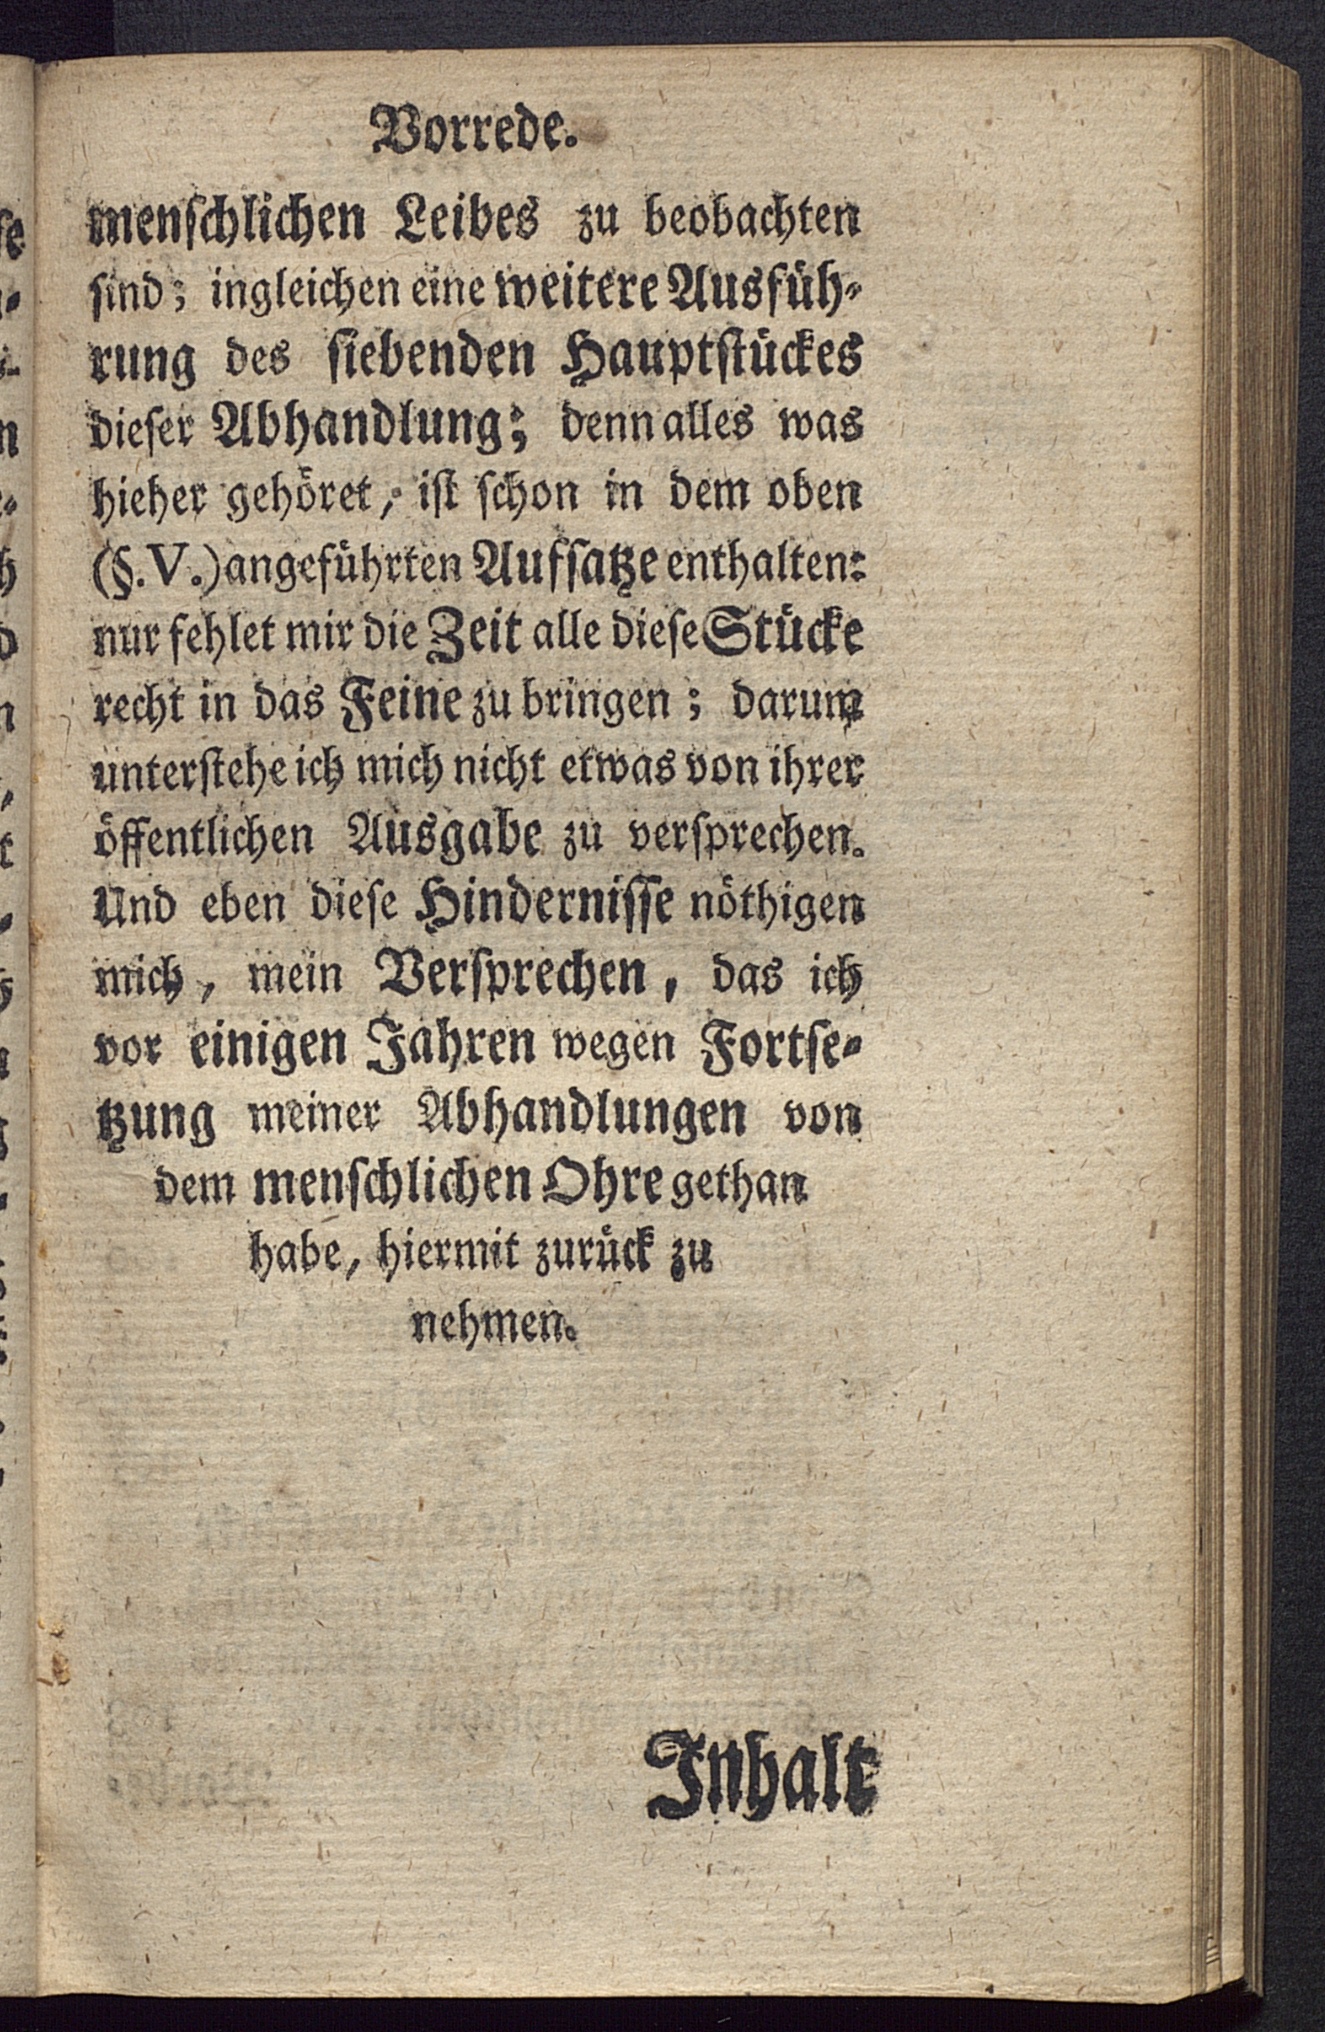 Vorrede.
menschlichen Leibes zu beobachten
sind; ingleichen eine weitere Ausfüh-
rung des siebenden Hauptstückes
dieser Abhandlung; denn alles was
hieher gehöret, ist schon in dem oben
(§. V.) angeführten Aufsatze enthalten:
nur fehlet mir die Zeit alle diese Stücke
recht in das Feine zu bringen; darum
unterstehe ich mich nicht etwas von ihrer
öffentlichen Ausgabe zu versprechen.
Und eben diese Hindernisse nöthigen
mich, mein Versprechen, das ich
vor einigen Jahren wegen Fortse-
tzung meiner Abhandlungen von
dem menschlichen Ohre gethan
habe, hiermit zurück zu
nehmen.
Inhalt